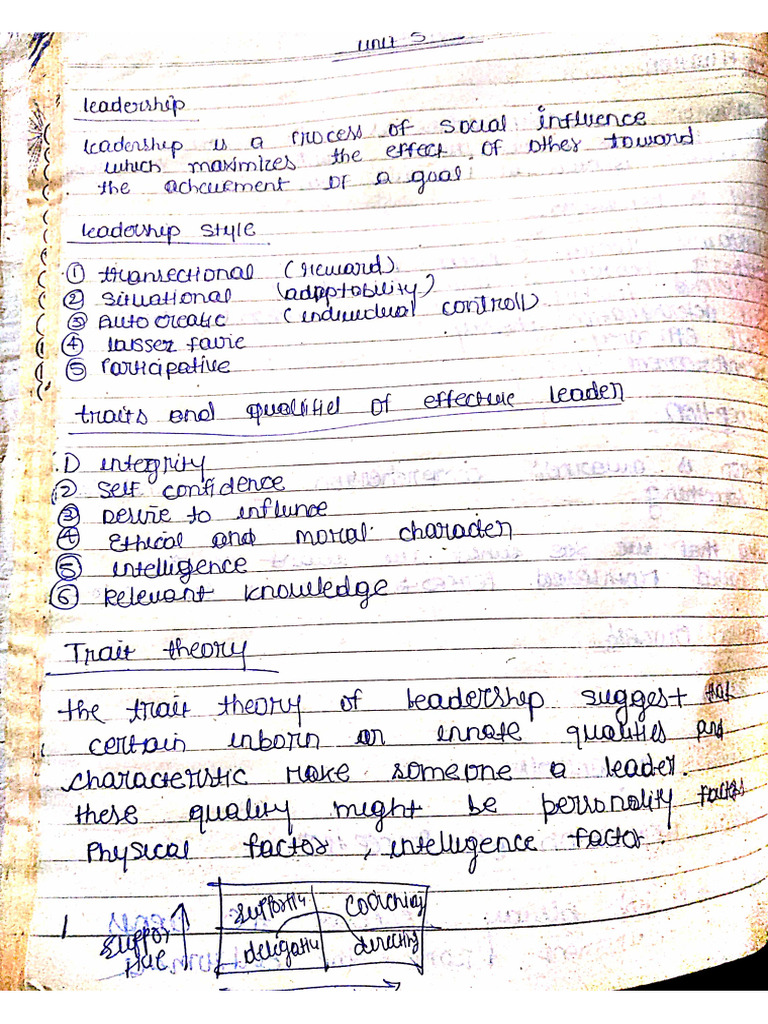 unit 5
leadership
leadership is a process of social influence
which maximizes the effect of other toward
the acheuement of a goal
leadership style
① transectional (reward)
② situational (adaptability)
③ Autocreatic (individual controll)
④ laisser favie
⑤ Participative
traits and qualitiel of effective leader
1) integrity
② self confidence
③ Desire to influnce
④ Ethical and moral character
⑤ intelligence
⑥ Relevant knowledge
Trait theory
the trait theory of leadership suggest that
certain inborn or innate qualities and
characteristic make someone a leader.
these quality might be personality factors
Physical factor, intelligence factor.
supportiv coaching
suppor
tive
deligative directing